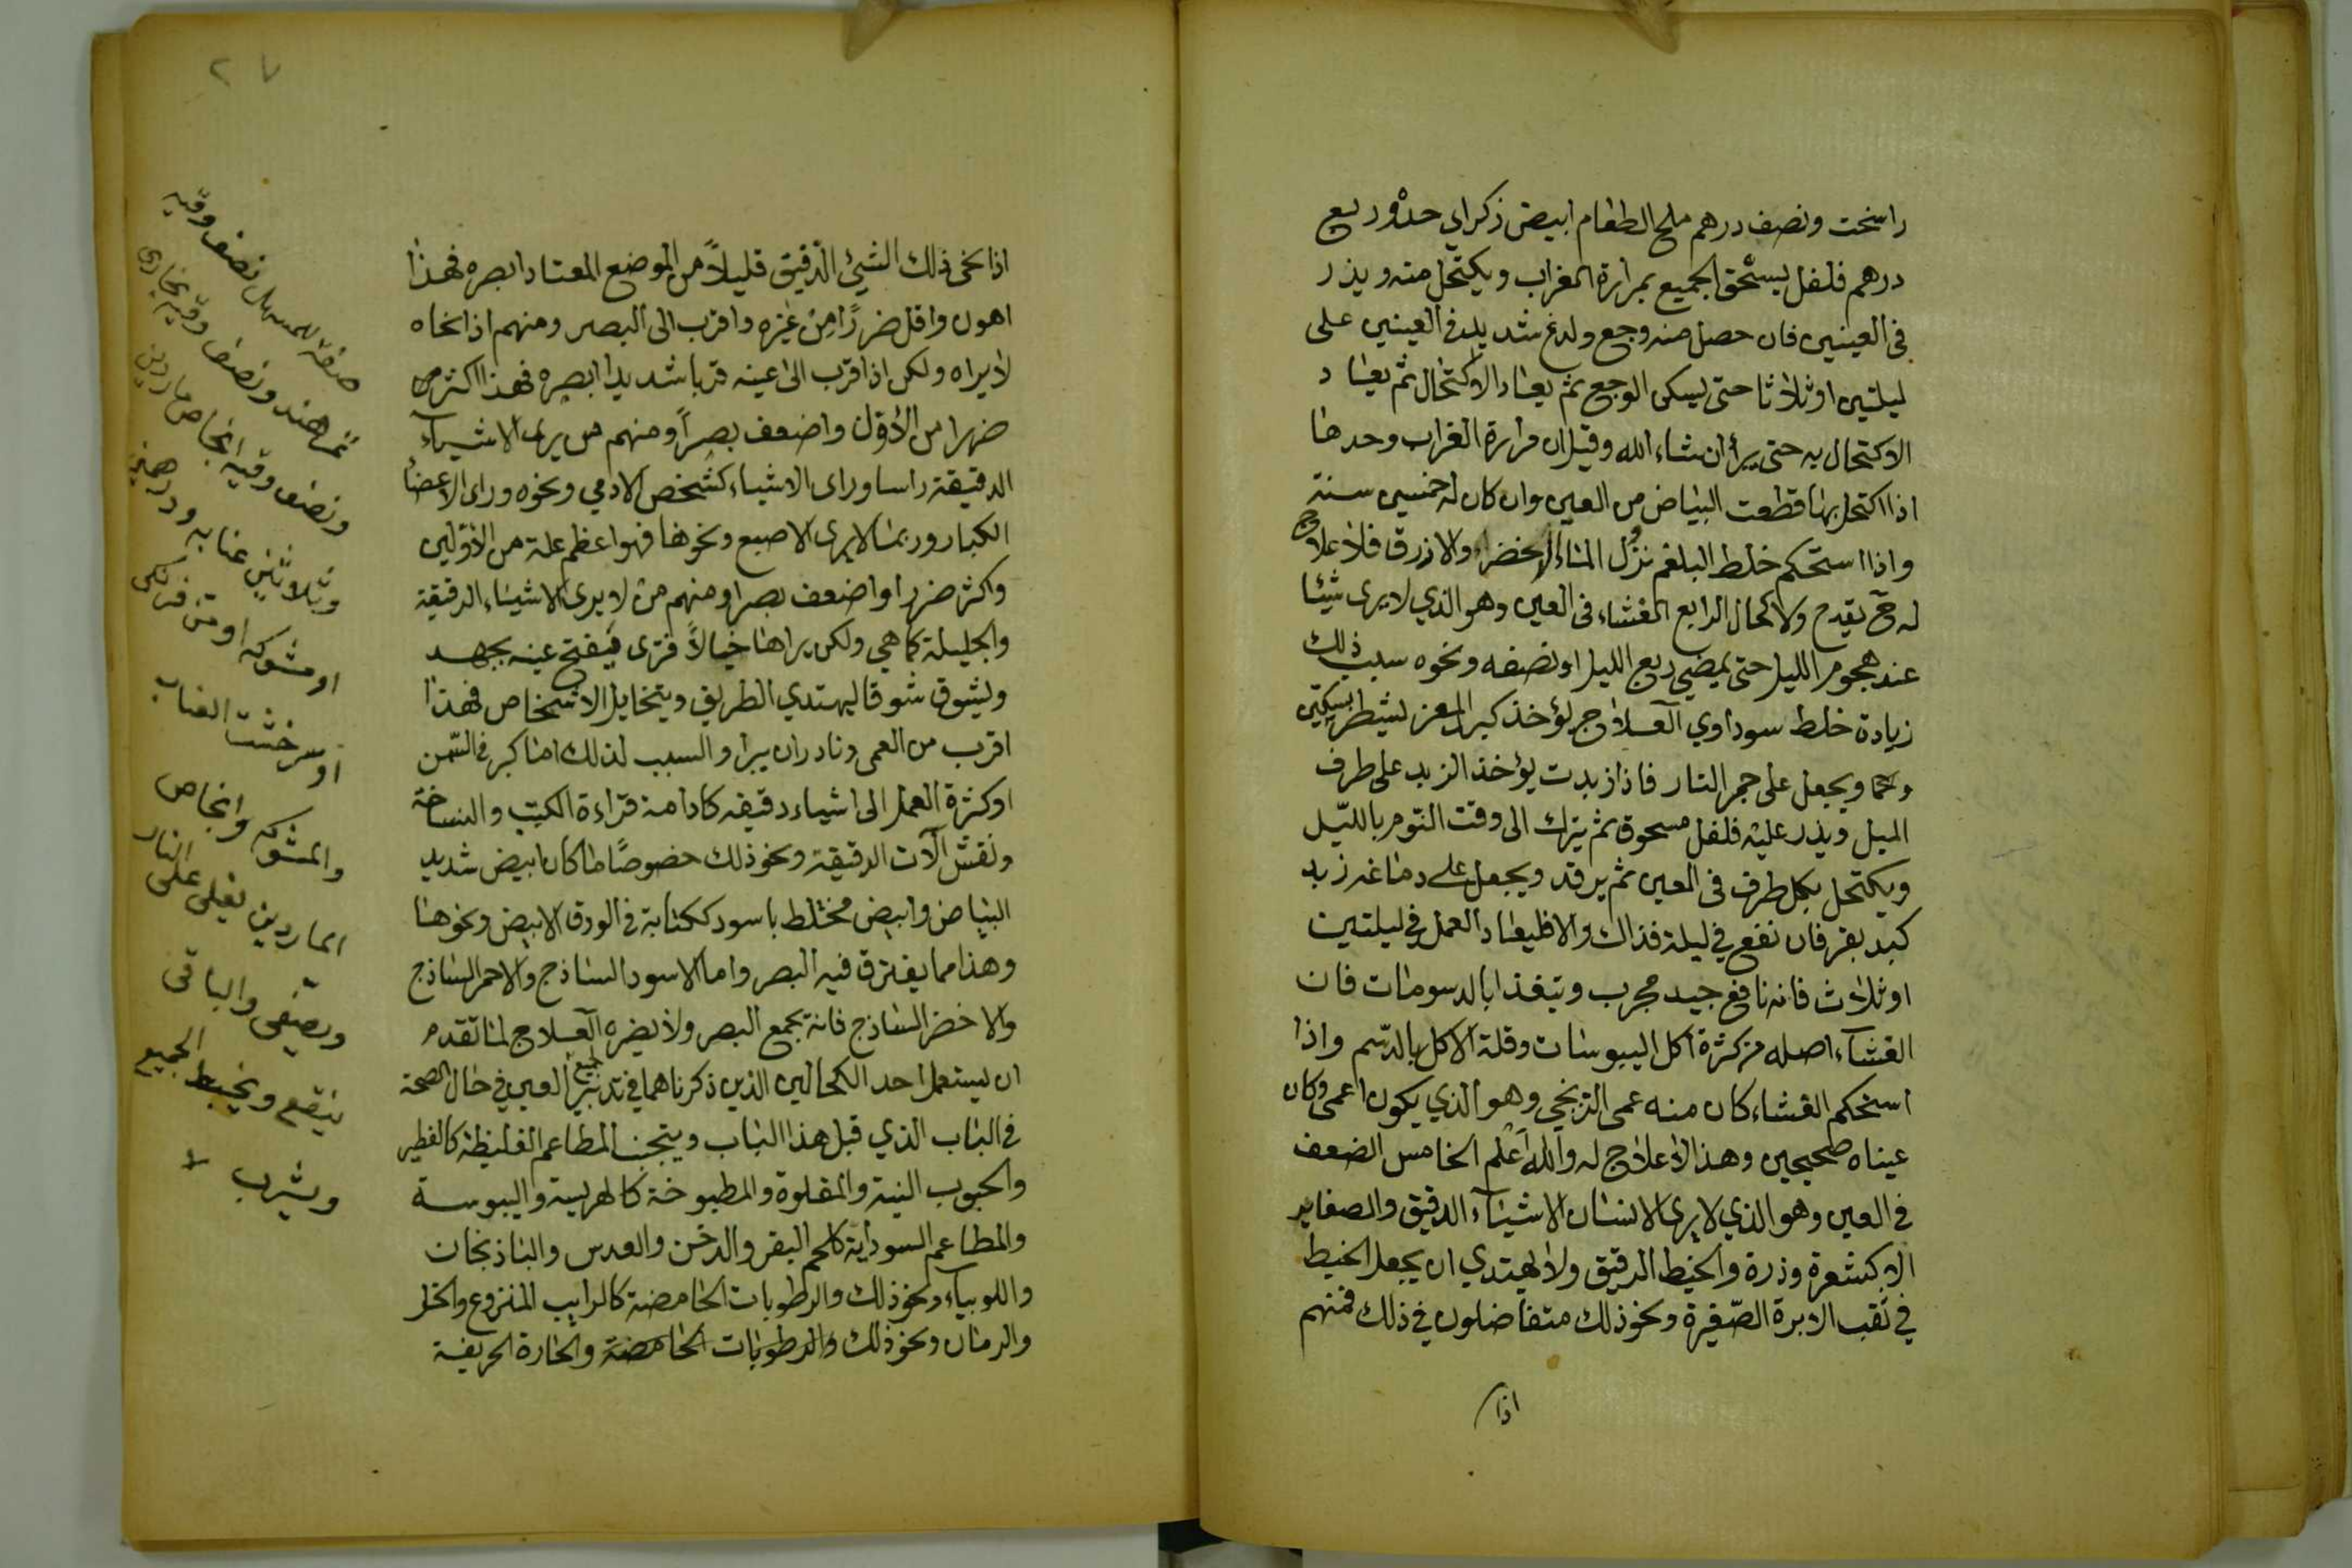 راسخت ونصف درهم ملح الطعام ابيض ذكراي حدة وربع
درهم فلفل يستحق الجميع بمرارة الغراب ويكتحل منه ويذر
في العينين فان حصل منه وجع ولدغ شديد في العينين على
ليلتين او ثلاثا حتى يسكن الوجع ثم يعاد الاكتحال ثم يعاد
الاكتحال به حتى يبرأ ان شاء الله وقيل ان مرارة الغراب وحدها
اذا اكتحل بها قطعت البياض من العين وان كان له خمسين سنة
واذا استحكم خلط البلغم نزل الماء الاخضر والازرق فلا علاج
له يقدح ولا كحال الرابع الغشاء في العين وهو الذي لا يرى شيئا
عند هجوم الليل حتى يمضي ربع الليل او نصفه ونحوه سبب ذلك
زيادة خلط سوداوي العلاج يؤخذ كبد المعز يشطر بسكين
ويجعل على جمر النار فاذا زبدت يؤخذ الزبد على طرف
الميل ويذر عليه فلفل مسحوق ثم يترك الى وقت النوم بالليل
ويكتحل بكل طرف في العين ثم يرقد ويجعل على دماغه زبد
كبد بقر فان نفع في ليلة فذاك والا فليعاد العمل في ليلتين
او ثلاث فانه نافع جيد مجرب ويتغذا بالدسومات فان
الغشاء اصله من كثرة اكل اليبوسات وقلة الاكل بالدسم واذا
استحكم الغشاء كان منه عمى الزنجي وهو الذي يكون اعمى وكان
عيناه صحيحين وهذا لا علاج له والله اعلم الخامس الضعف
في العين وهو الذي لا يرى الانسان الاشياء الدقيق والصغاير
الا كشعرة وذرة والخيط الدقيق ولا يهتدي ان يجعل الخيط
في ثقب الابرة الصغيرة ونحو ذلك متفاضلون في ذلك فمنهم
اذا
٢٧
اذا نخى ذلك الشيئ الدقيق قليلاً من الموضع المعتاد ابصره فهذا
اهون واقل ضرراً من غيره واقرب الى البصر ومنهم اذا نخاه
لا يراه ولكن اذا قرب الى عينه قربا شديدا ابصره فهذا اكثر من
ضررا من الاول واضعف بصراً ومنهم من يرى الاشياء
الدقيقة راسا وراى الاشياء كشخص الادمي ونحوه وراى الاعضا
الكبار وربما لا يرى الاصبع ونحوها فهو اعظم علة من الاولين
واكثر ضررا واضعف بصرا ومنهم من لا يرى الاشياء الدقيقة
والجليلة كما هي ولكن يراها خيالاً فترى فيفتح عينه بجهد
وليثوق شوقا ليهتدي الطريق ويتخايل الاشخاص فهذا
اقرب من العمى ونادر ان يبرا والسبب لذلك اما كبر في السن
او كثرة العمل الى اشياء دقيقه كادامة قراءة الكتب والنساخة
ونقش آلات الدقيقة ونحو ذلك خصوصاً ما كان ابيض شديد
البياض وابيض مختلط باسود ككتابة في الورق الابيض ونحوها
وهذا مما يفترق فيه البصر واما الاسود الساذج والاحمر الساذج
والاخضر الساذج فانه يجمع البصر ولا يضره العلاج لما تقدم
ان يستعمل احد الكحالين الذين ذكرناهما في تدبير جميع العين في حال الصحة
في الباب الذي قبل هذا الباب ويتجنب المطاعم الغليظة كالفطير
والحبوب النية والمقلوة والمطبوخة كالهريسة واليبوسة
والمطاعم السوداية كلحم البقر والدخن والعدس والباذنجان
واللوبياء ونحو ذلك والرطوبات الحامضة كالرايب المنزوع والخل
والرمان ونحو ذلك والرطوبات الحامضة والحارة الحريفة
صفة المسهل نصف وقيه
تمر هند ونصف وقيه بخاري
ونصف وقيه انجاص ماردين
وثلاثين عنابه ودرهمين
او مشوكه او من فرنكي
او سرخشت العناب
والمشوكه وانجاص
الماردين يغلى على النار
ويصفى والباقى
ينقع ويخبط الجميع
ويشرب